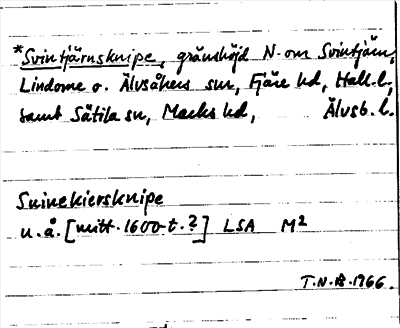 *Svintjärnsknipe, gränshöjd N-om Svintjärn,
Lindome o. Älvsåkers snr, Fjäre hd, Hall.l,
samt Sätila sn, Marks hd, Älvsb.l.
Suinekiersknipe
u.å. [mitt. 1600-t.?] LSA M²
T.N-B. 1966.